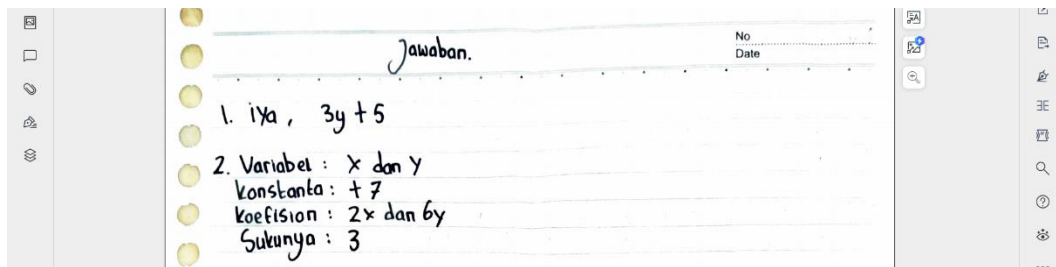 Jawaban.
No
Date
1. iya, 3y + 5
2. Variabel : x dan y
konstanta : + 7
koefision : 2x dan 6y
Sukunya : 3